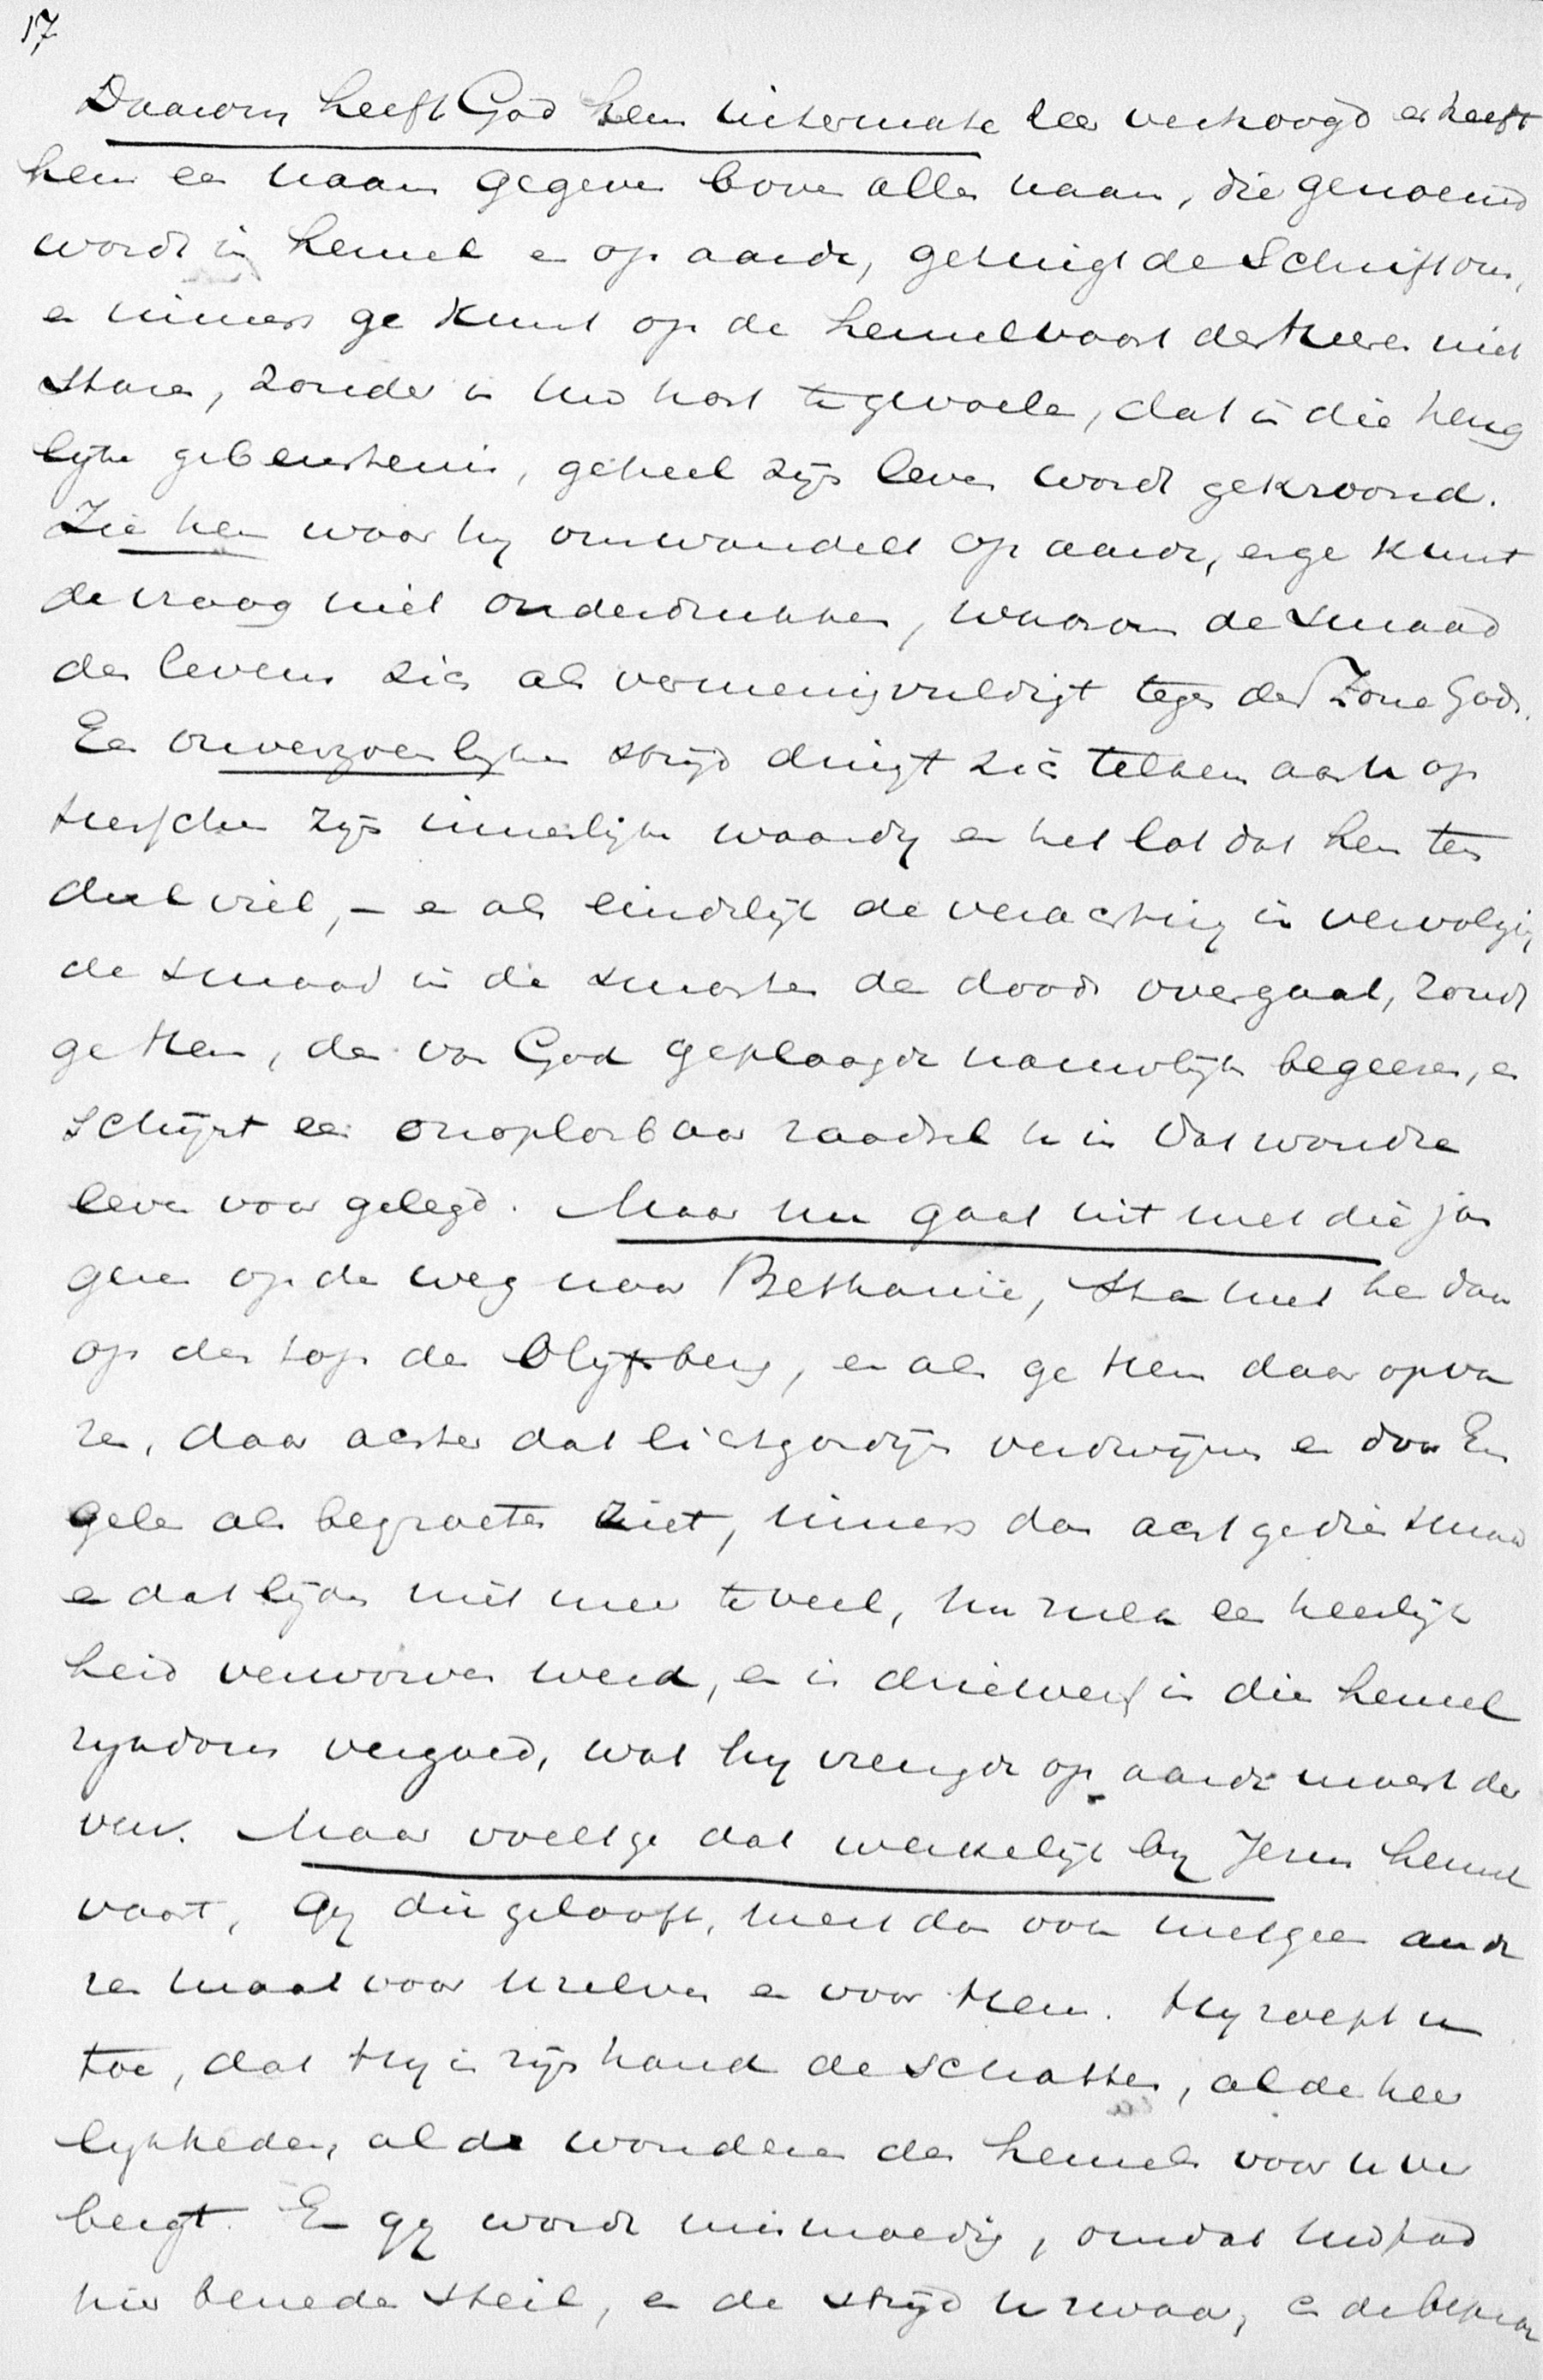 17
Daarom heeft God hem uitermate zeer verhoogd en heeft
hem een naam gegeven boven allen naam, die genoemd
wordt in hemel en op aarde, getuigt de Schrift ons,
en immers ge kunt op de hemelvaart des Heeren niet
staren, zonder in uw hart te gevoelen, dat in die heug
lijke gebeurtenis, geheel zijn leven wordt gekroond.
Zie hem waar hij omwandelt op aarde, en ge kunt
de vraag niet onderdrukken, waarom de smaad
des levens zich als vermenigvuldigt tegen den Zone Gods.
Een onverzoenlijken strijd dringt zich telkens aan u op
tusschen zijn innerlijke waardij en het lot dat hem ten
deel viel, – en als eindelijk de verachting in vervolging
de smaad in de smarten des doods overgaat, zoudt
ge Hem, den van God geplaagde nauwlijks begeeren, en
schijnt een onoplosbaar raadsel u in dat wondre
leven voorgelegd. Maar nu gaat uit met die jon
geren op den weg naar Bethanië, sta met hen dan
op den top des Olijfsbergs, en als ge Hem daar opva
ren, daar achter dat lichtgordijn verdwijnen en door En
gelen als begroeten ziet, immers dan acht ge die smaad
en dat lijden niet meer te veel, nu zulk een heerlijk
heid verworven werd, en is driewerf in die hemel
rijkdom vergoed, wat hij vreugde op aarde moest der
ven. Maar voelt ge dat werkelijk bij Jezus hemel
vaart, Gij die gelooft, meet dan ook met geen and
ren maat voor uzelven en voor Hem. Hij roept u
toe, dat Hij in zijn hand de schatten, al de heer
lijkheden, al de wonderen des hemels voor u ver
bergt. En gij wordt mismoedig, omdat uw pad
hier beneden steil, en de strijd u zwaar, en de